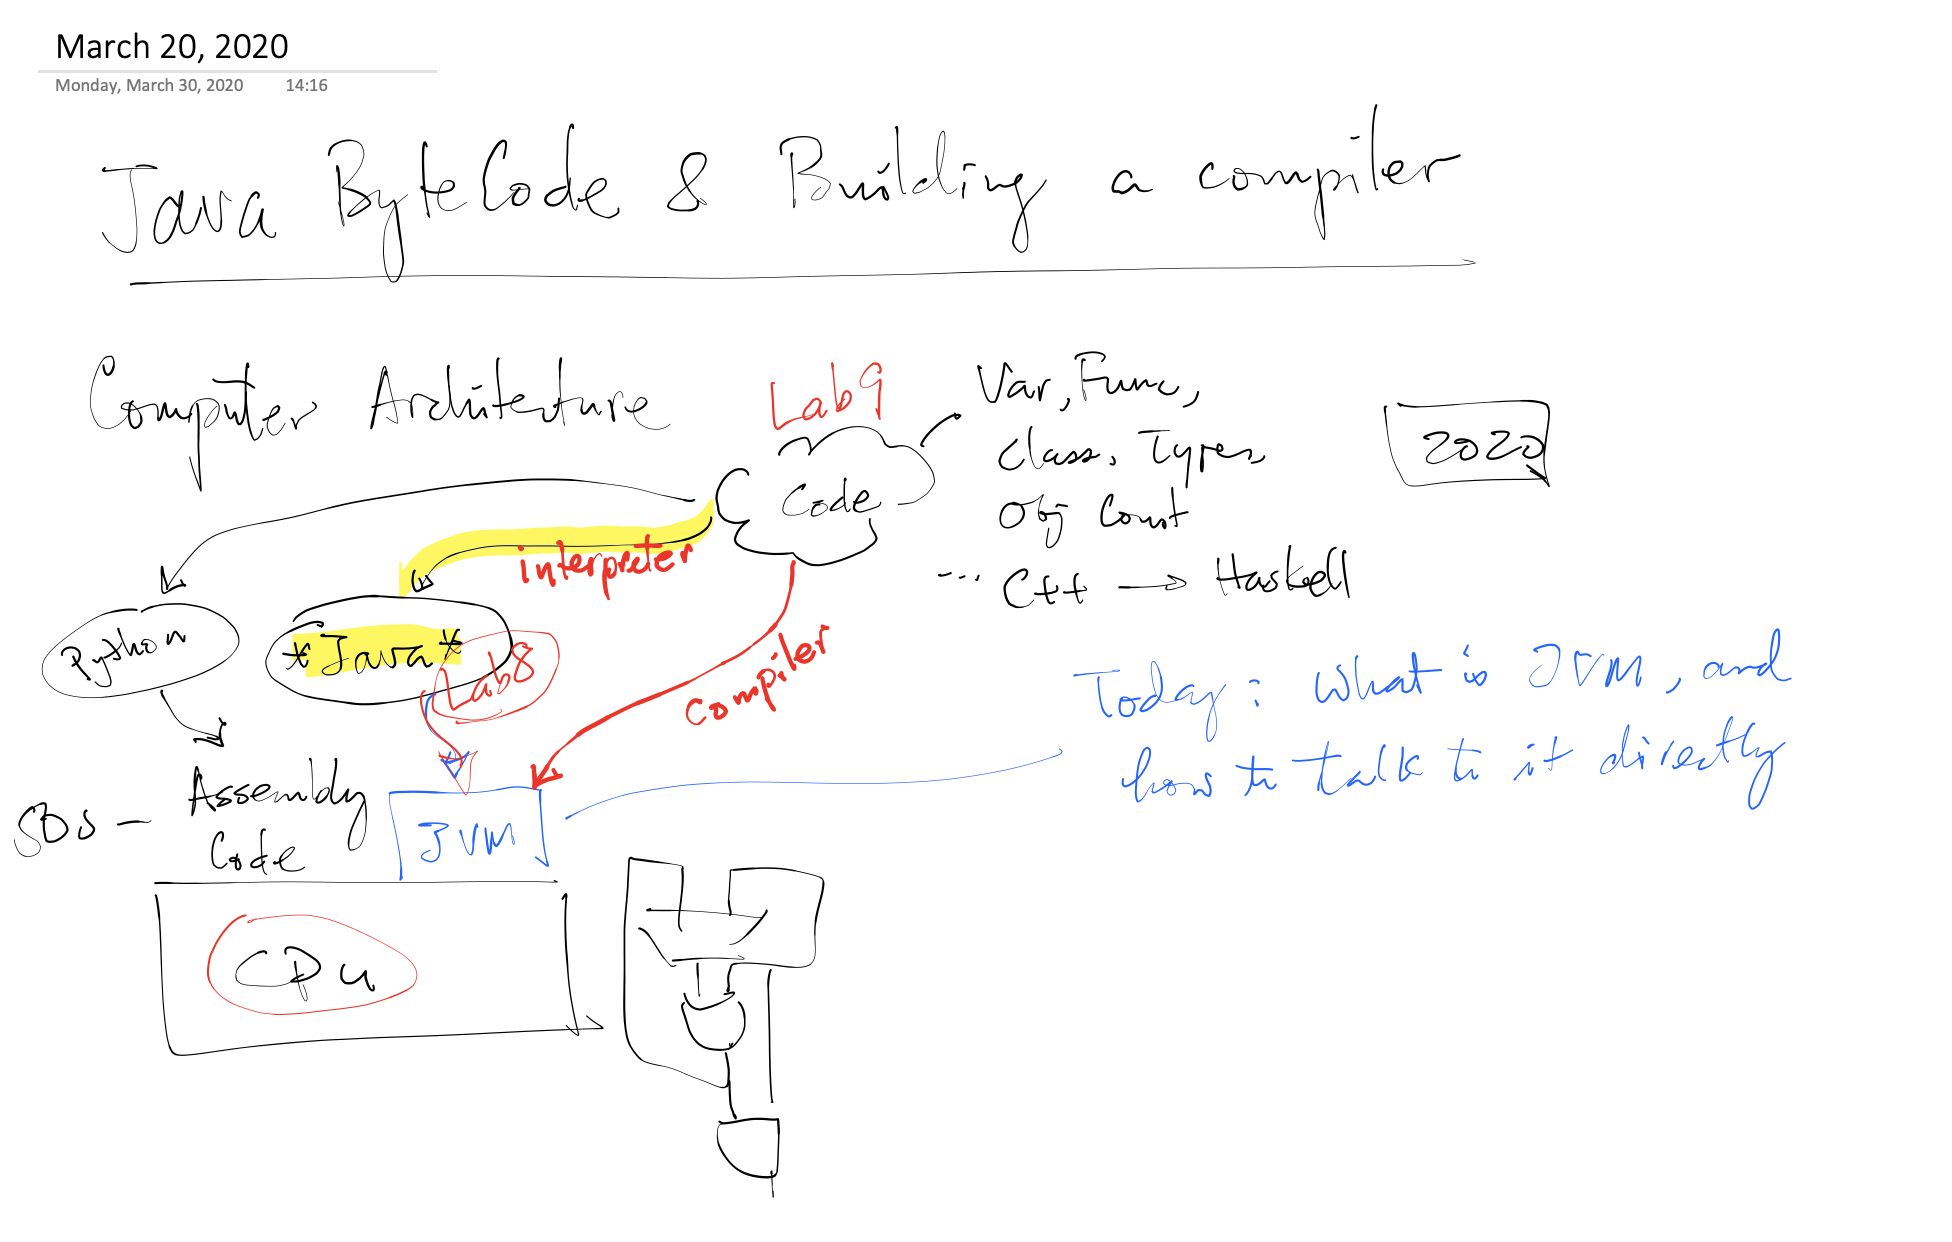 March 20, 2020
Monday, March 30, 2020 14:16
Java ByteCode & Building a compiler
Computer Architecture
Lab9
Var, Func,
Class, Types
Obj Const
... C++ → Haskell
2020
Code
interpreter
Compiler
Python
*Java*
Lab8
Today: What is JVM, and
how to talk to it directly
50s - Assembly
Code
JVM
CPU